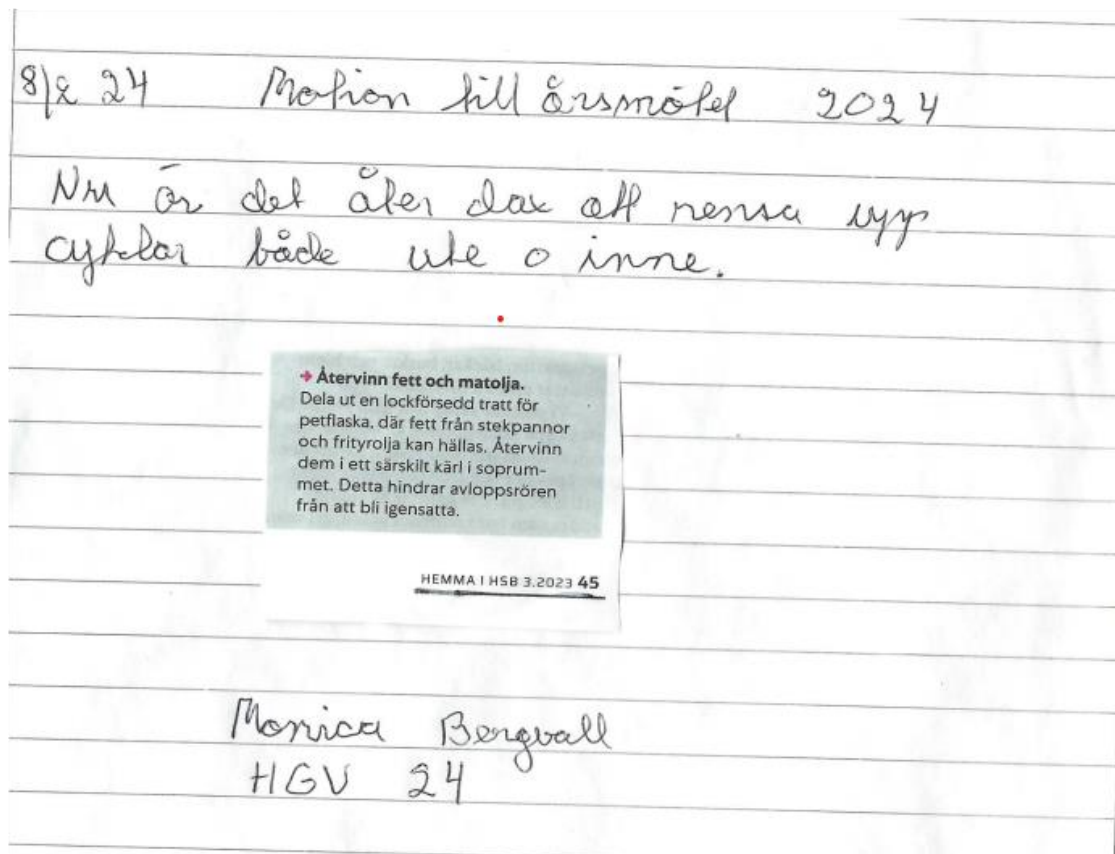 8/2 24 Motion till årsmötet 2024
Nu är det åter dax att rensa upp
cyklar både ute o inne.
→ Återvinn fett och matolja.
Dela ut en lockförsedd tratt för
petflaska, där fett från stekpannor
och frityrolja kan hällas. Återvinn
dem i ett särskilt kärl i soprum-
met. Detta hindrar avloppsrören
från att bli igensatta.
HEMMA I HSB 3.2023 45
Monica Bergvall
HGV 24